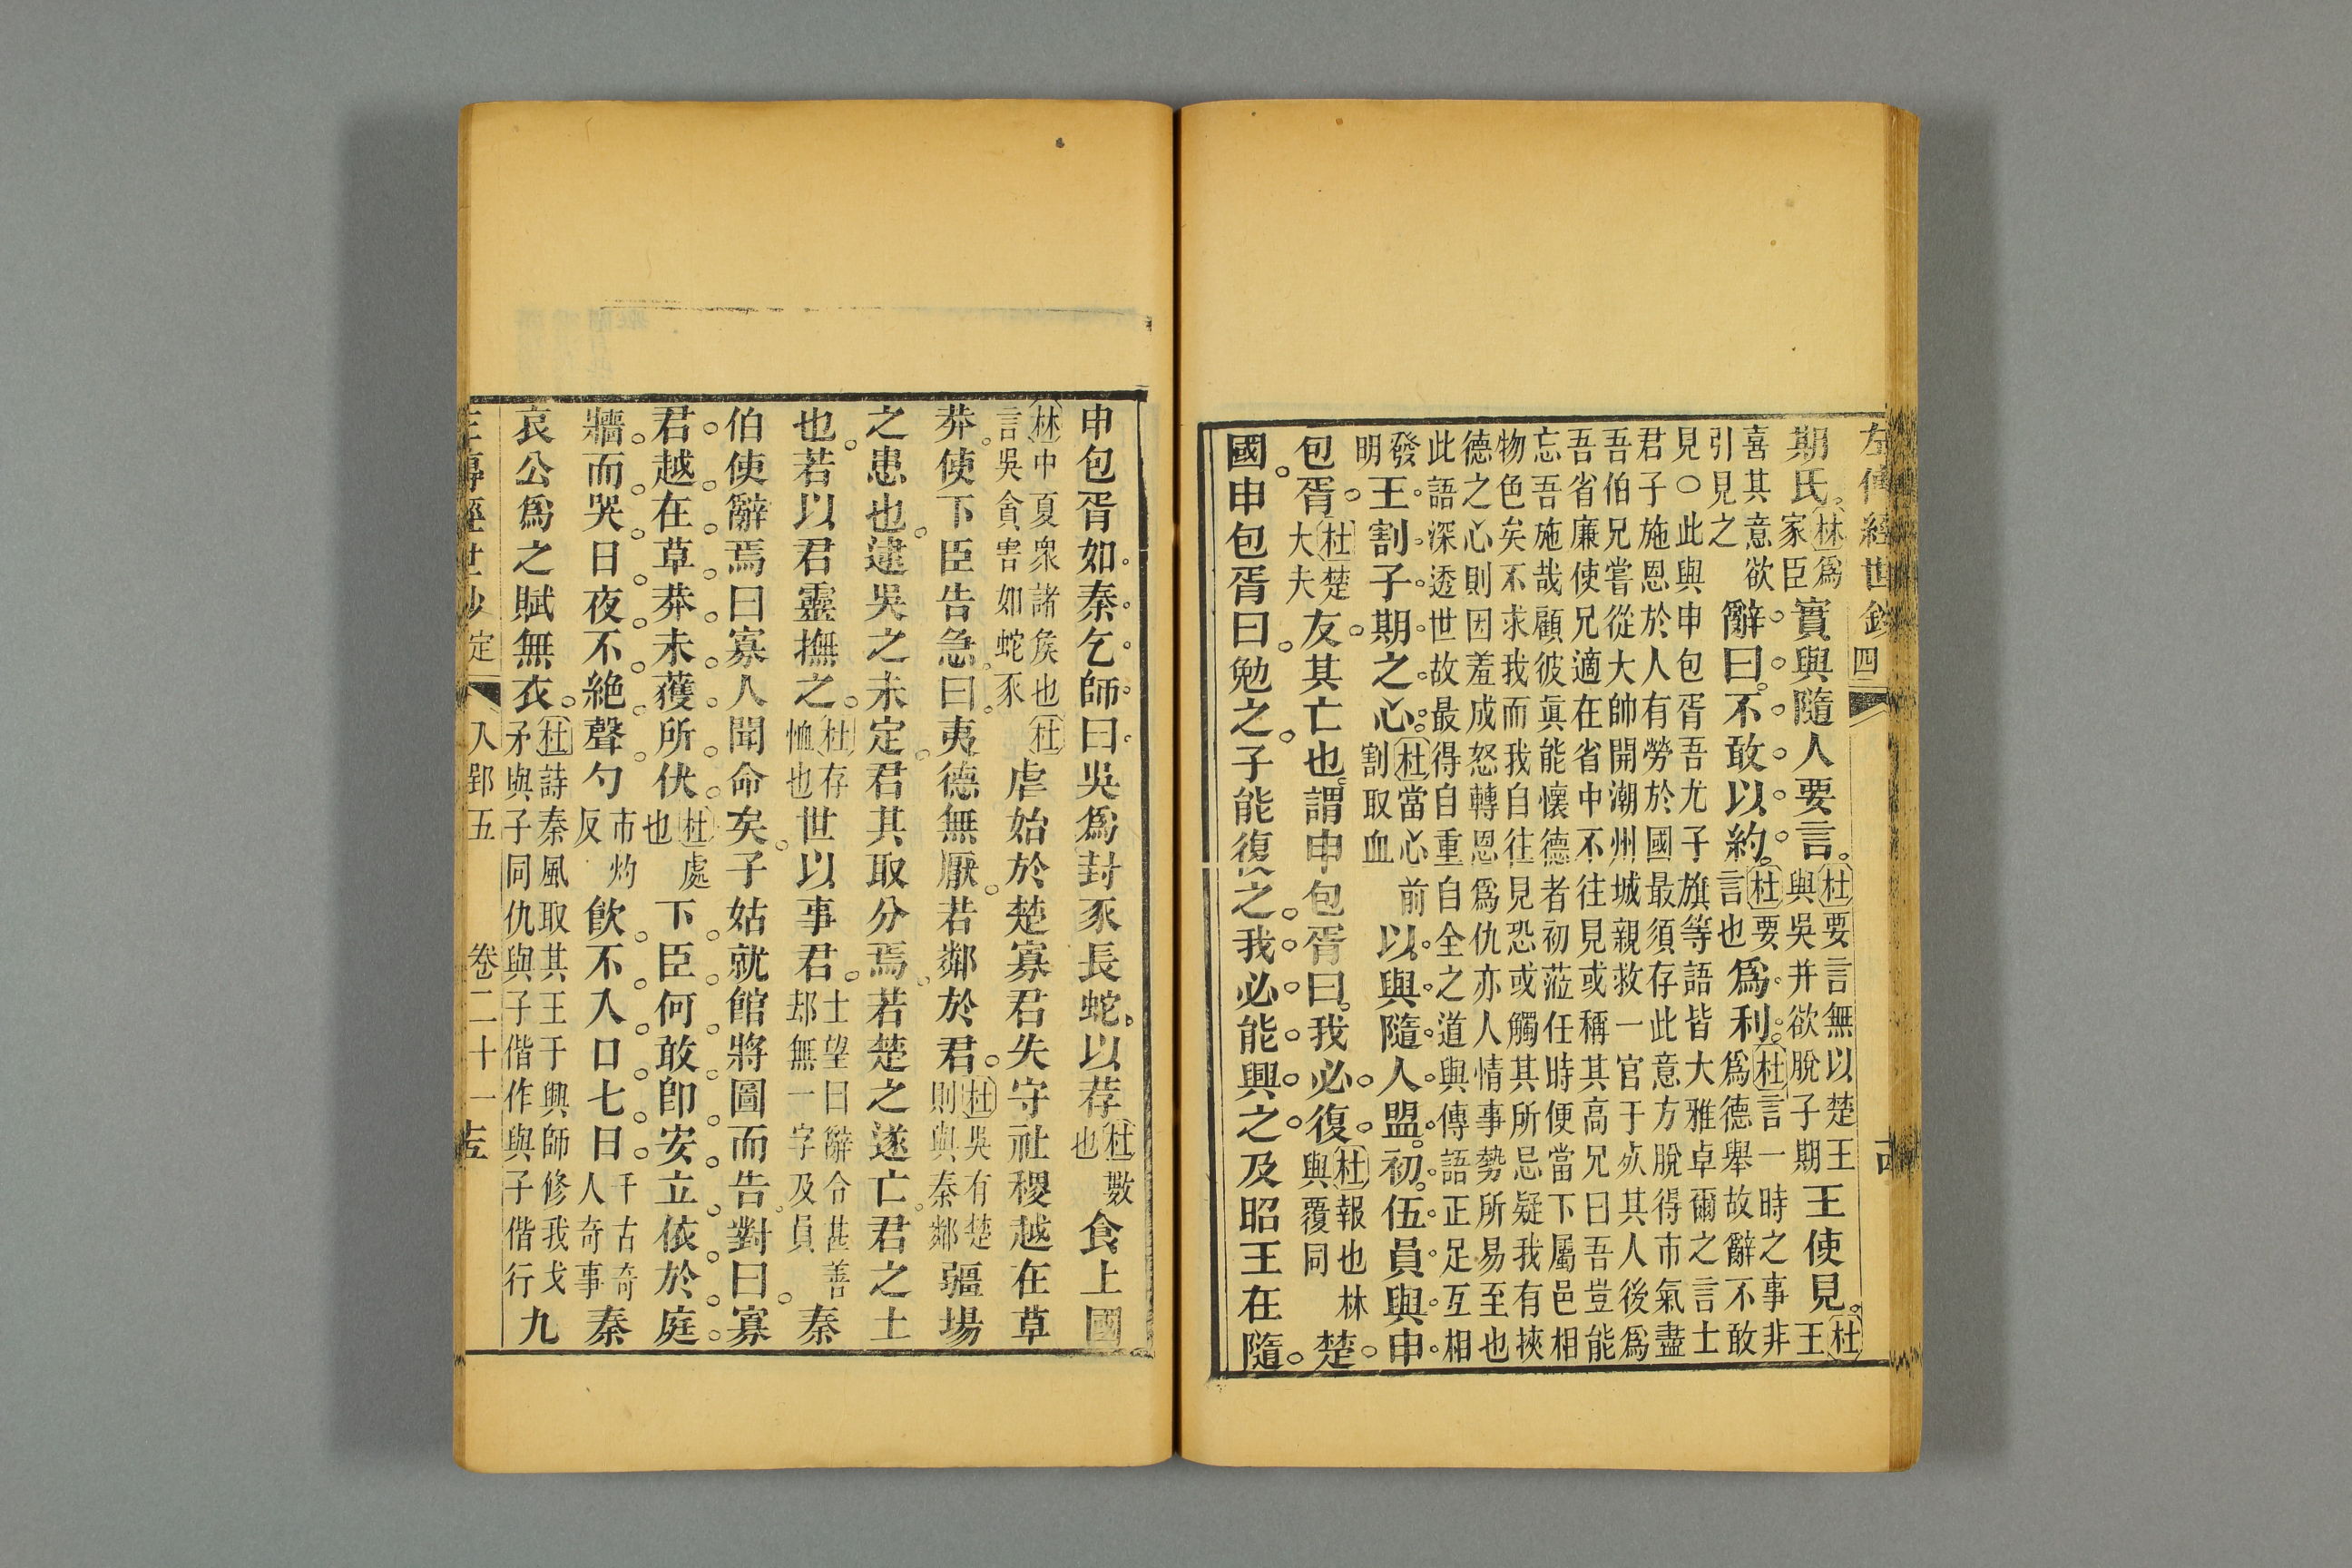 左傳經世鈔 四
期氏林爲家臣實與隨人要言杜要言無以楚王與吳并欲脫子期王使見杜王
喜其意欲引見之辭曰不敢以約杜要言也爲利杜言一時之事非爲德舉故辭不敢
見○此與申包胥吾尤子旗等語皆大雅卓爾之言士
君子施恩於人有勞於國最須存此意方脫得市氣盡
吾伯兄嘗從大帥開潮州城親救一官于死其人後爲
吾省廉使兄適在省中不往見或稱其高兄曰吾豈能
忘吾施哉顧彼眞能懷德者初蒞任時便當下屬邑相
物色矣不求我而我自往見恐或觸其所忌疑我有挾
德之心則因羞成怒轉恩爲仇亦人情事勢所易至也
此語深透世故最得自重自全之道與傳語正足互相
發明王割子期之心杜當心前割取血以與隨人盟初伍員與申
包胥杜楚大夫友其亡也謂申包胥曰我必復杜報也林與覆同楚
國申包胥曰勉之子能復之我必能興之及昭王在隨
申包胥如秦乞師曰吳爲封豕長蛇以荐杜數也食上國
林中夏衆諸矦也言吳貪害如蛇豕杜虐始於楚寡君失守社稷越在草
莽使下臣告急曰夷德無厭若鄰於君杜吳有楚則與秦鄰疆場
之患也逮吳之未定君其取分焉若楚之遂亡君之土
也若以君靈撫之杜存恤也世以事君士望曰辭令甚善却無一字及員秦
伯使辭焉曰寡人聞命矣子姑就館將圖而告對曰寡
君越在草莽未獲所伏杜處也下臣何敢卽安立依於庭
牆而哭日夜不絕聲勺市灼反飮不入口七日千古奇人奇事秦
哀公爲之賦無衣杜詩秦風取其王于興師修我戈矛與子同仇與子偕作與子偕行九
左傳經世鈔 定 入郢五 卷二十一